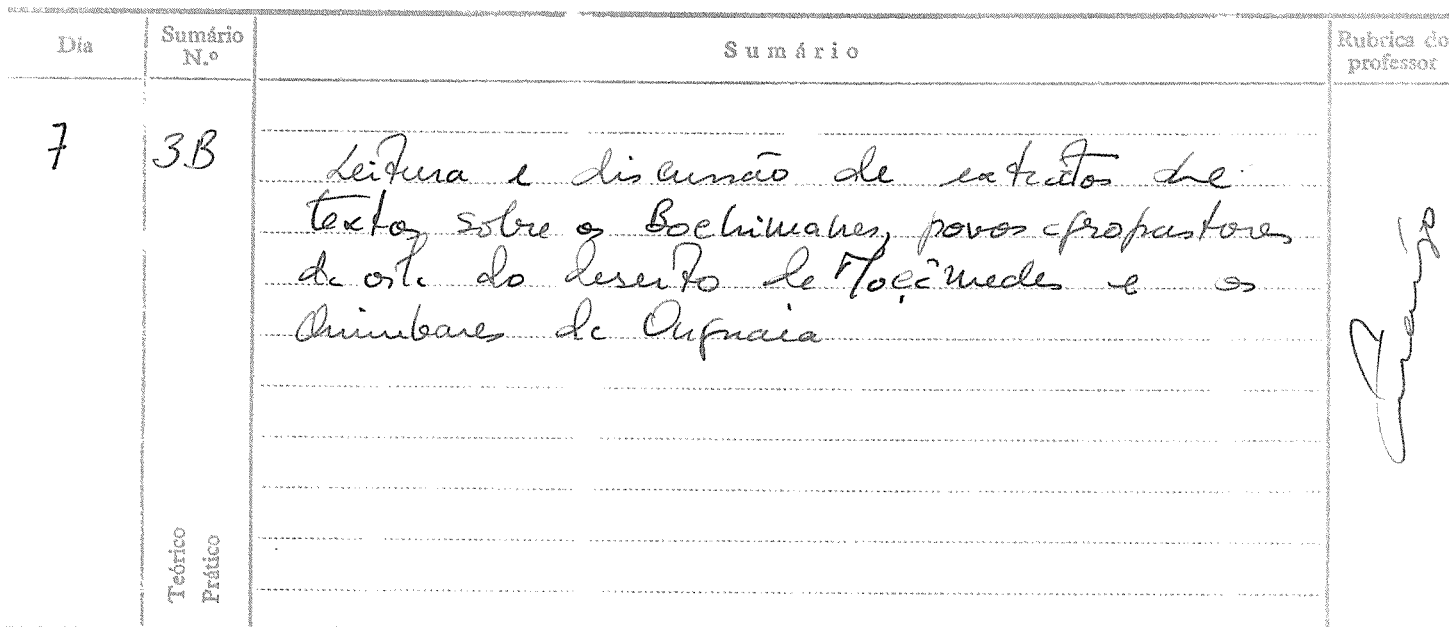 Dia
Sumário N.º
Sumário
Rubrica do professor
7
3B
Leitura e discussão de extratos de
textos sobre os Bochimanes, povos agropastores
da orla do deserto de Moçâmedes e os
Quimbares de
Teórico
Prático